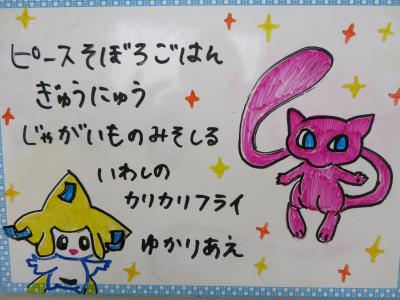 ピースそぼろごはん
ぎゅうにゅう
じゃがいものみそしる
いわしの
カリカリフライ
ゆかりあえ